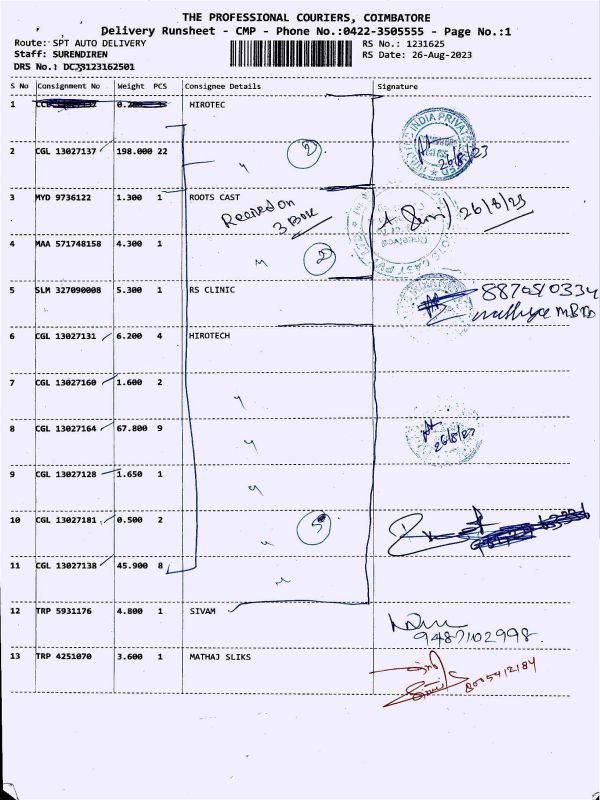 THE PROFESSIONAL COURIERS, COIMBATORE
Delivery Runsheet - CMP - Phone No.:0422-3505555 - Page No.:1
Route: SPT AUTO DELIVERY RS No.: 1231625
Staff: SURENDIREN RS Date: 26-Aug-2023
DRS No.: 123162501
S No Consignment No Weight PCS Consignee Details Signature
1 HIROTEC
INDIA PRIVATE
2 CGL 13027137 198.000 22 2 26/8/23
3 MYD 9736122 1.300 1 ROOTS CAST
Received on 26/8/23
3 Box
Received
4 MAA 571748158 4.300 1 2
5 SLM 327090008 5.300 1 RS CLINIC 8870510334
6 CGL 13027131 6.200 4 HIROTECH
7 CGL 13027160 1.600 2
8 CGL 13027164 67.800 9 26/8/23
9 CGL 13027128 1.650 1
10 CGL 13027181 0.500 2 5
11 CGL 13027138 45.900 8
12 TRP 5931176 4.800 1 SIVAM
9487102998
13 TRP 4251070 3.600 1 MATHAJ SLIKS